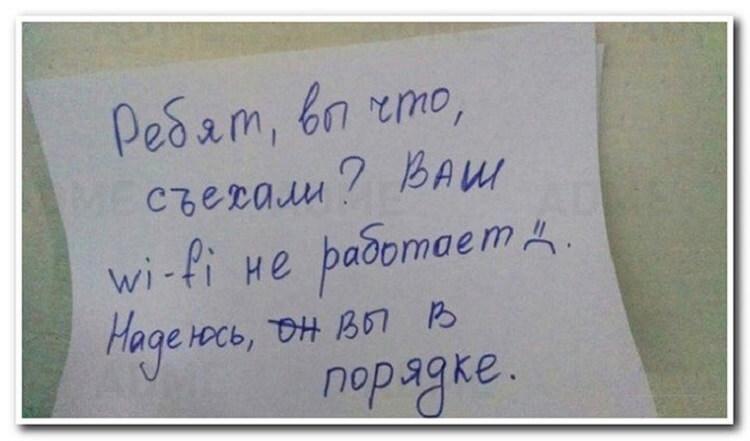 Ребят, вы что,
съехали? ВАШ
wi-fi не работает :(.
Надеюсь, он вы в
порядке.